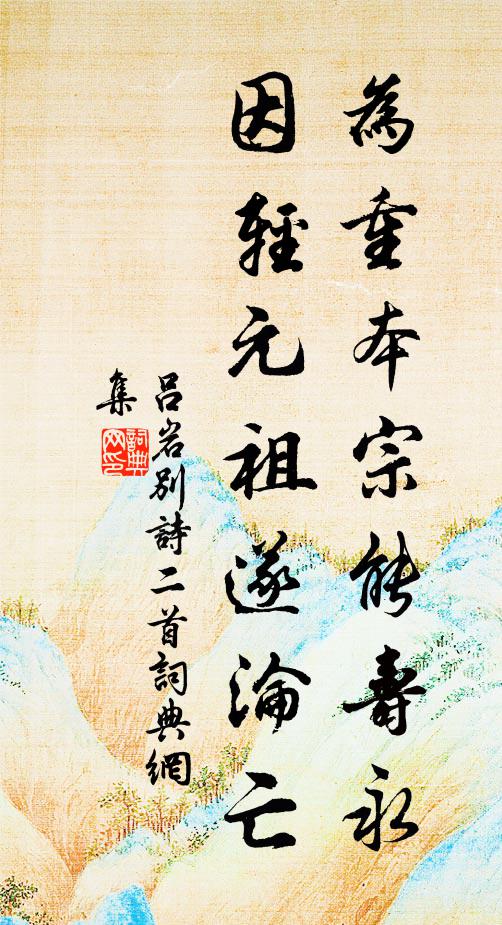 為重本宗能壽永
因輕元祖遂淪亡
呂岩別詩二首詞典網
集
詞典
网印